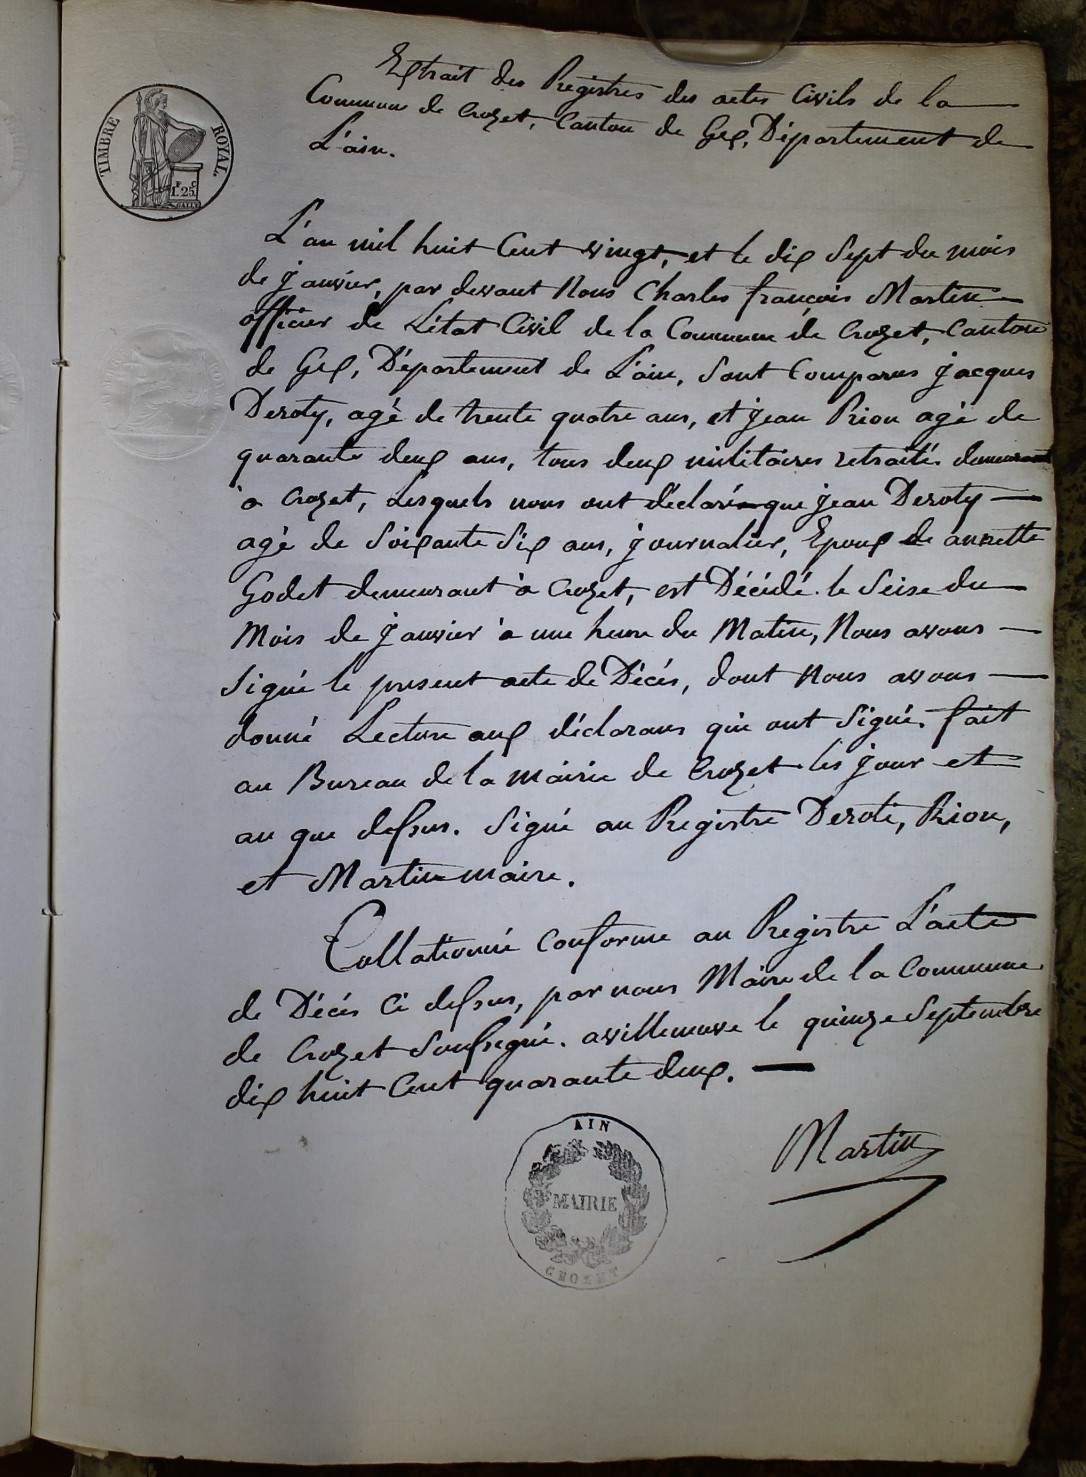 Extrait des Registres des actes Civils de la
Commune de Crozet, Canton de Gex, Département de
L'ain.
TIMBRE ROYAL
1F. 25C
L'an mil huit Cent vingt, et le dix Sept du mois
de janvier, par devant Nous Charles françois Martin
officier de L'état Civil de la Commune de Crozet, Canton
de Gex, Département de L'ain, Sont Comparus jacques
Deroty, agé de trente quatre ans, et jean Rion agé de
quarante deux ans, tous deux militaires retraités demeurant
à Crozet, Lesquels nous ont déclaré que jean Deroty
agé de Soixante Six ans, journalier, Epoux de annette
Godet demeurant à Crozet, est Décédé le Seise du
Mois de janvier à une heure du Matin, Nous avons
Signé le present acte de Décés, dont Nous avons
donné Lecture aux déclarans qui ont Signé. fait
au Bureau de la mairie de Crozet les jour et
an que dessus. Signé au Registre Deroti, Rion,
et Martin maire.
Collationné Conforme au Registre L'acte
de Décés Ci dessus, par nous Maire de la Commune
de Crozet Soussigné. avilleneuve le quinze Septembre
dix huit Cent quarante deux.
Martin
AIN
MAIRIE
CROZET